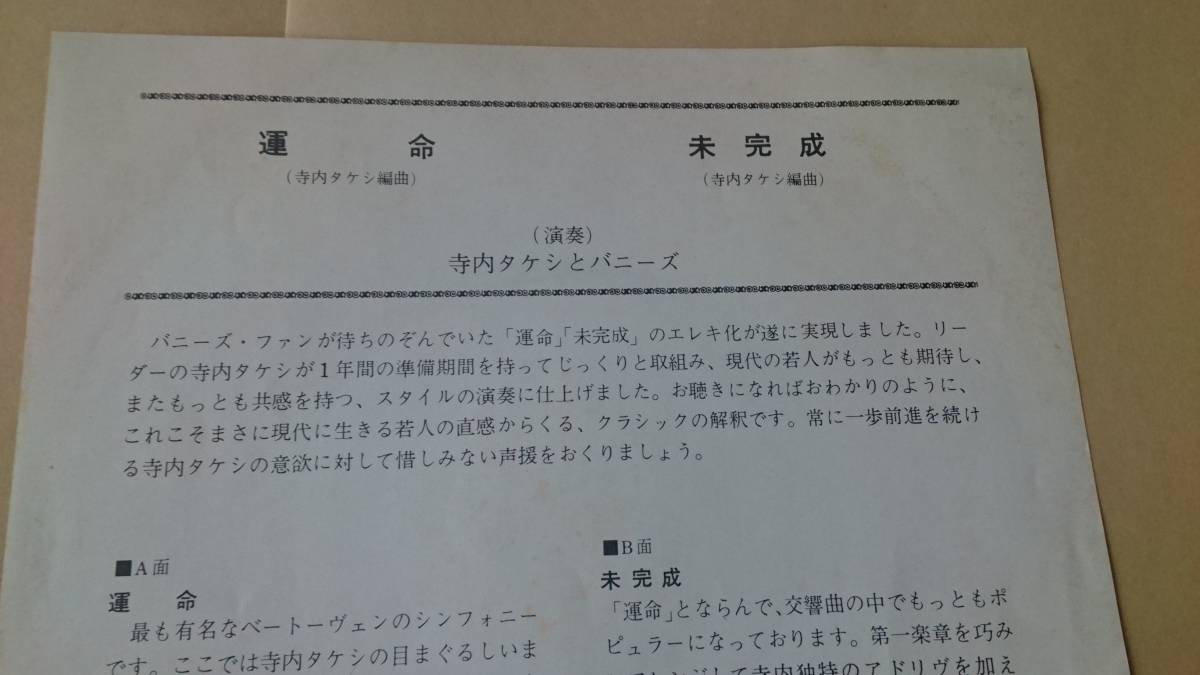 運命 未完成
(寺内タケシ編曲) (寺内タケシ編曲)
(演奏)
寺内タケシとバニーズ
バニーズ・ファンが待ちのぞんでいた「運命」「未完成」のエレキ化が遂に実現しました。リー
ダーの寺内タケシが1年間の準備期間を持ってじっくりと取組み、現代の若人がもっとも期待し、
またもっとも共感を持つ、スタイルの演奏に仕上げました。お聴きになればおわかりのように、
これこそまさに現代に生きる若人の直感からくる、クラシックの解釈です。常に一歩前進を続け
る寺内タケシの意欲に対して惜しみない声援をおくりましょう。
■A面
運命
最も有名なベートーヴェンのシンフォニー
です。ここでは寺内タケシの目まぐるしいま
■B面
未完成
「運命」とならんで、交響曲の中でもっともポ
ピュラーになっております。第一楽章を巧み
にアレンジして寺内独特のアドリヴを加え